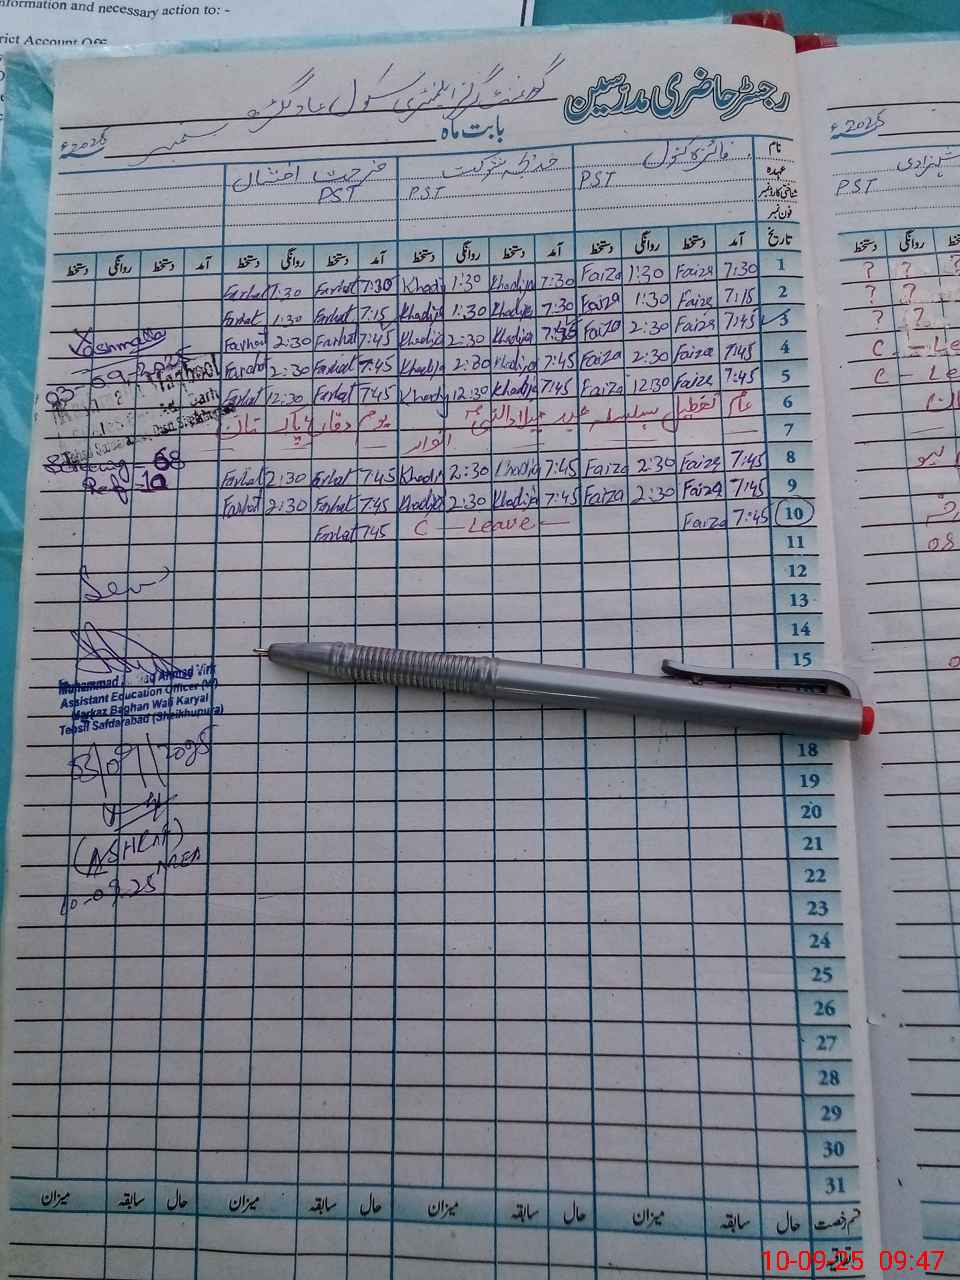 nformation and necessary action to: -
rict Account Off
رجسٹر حاضری مدرسین
گورنمنٹ گرلز ایلیمنٹری سکول
بابت ماہ ستمبر 2025ء
2025ء
نام فائزہ کنول خدیجہ شوکت فرحت افشاں
عہدہ PST PST PST
PST
شناختی کارڈ نمبر
فون نمبر
تاریخ آمد دستخط روانگی دستخط آمد دستخط روانگی دستخط آمد دستخط روانگی دستخط آمد دستخط روانگی دستخط
روانگی دستخط
1 7:30 Faiza 1:30 Faiza 7:30 Khadija 1:30 Khadij 7:30 Farhat 1:30 Farhat
? ?
2 7:15 Faiza 1:30 Faiza 7:30 Khadija 1:30 Khadija 7:15 Farhat 1:30 Farhat
? ?
3 7:45 Faiza 2:30 Faiza Khadija 2:30 Khadija 7:45 Farhat 2:30 Farhat
? ?
4 7:45 Faiza 2:30 Faiza 7:45 Khadija 2:30 Khadija 7:45 Farhat 2:30 Farhat
C - Le
5 7:45 Faiza 12:30 Faiza 7:45 Khadija 12:30 Khadija 7:45 Farhat 12:30 Farhat
C - Le
6 عام تعطیل بسلسلہ عید میلادالنبی یوم دفاع پاکستان
7 اتوار
8 7:45 Faiza 2:30 Faiza 7:45 Khadija 2:30 Khadij 7:45 Farhat 2:30 Farhat
9 7:45 Faiza 2:30 Faiza 7:45 Khadija 2:30 Khadija 7:45 Farhat 2:30 Farhat
10 7:45 Faiza C - Leave - 7:45 Farhat
08
11
12
13
14
15
18
19
20
21
22
23
24
25
26
27
28
29
30
31
03-09-2025
68
10
Assistant Education Officer (W)
Markaz Baghan Wali Karyal
Tehsil Safdarabad (Sheikhupura)
10-09-25
قسم رخصت حال سابقہ میزان حال سابقہ میزان حال سابقہ میزان حال سابقہ میزان
اتفاقیہ
10-09-25 09:47